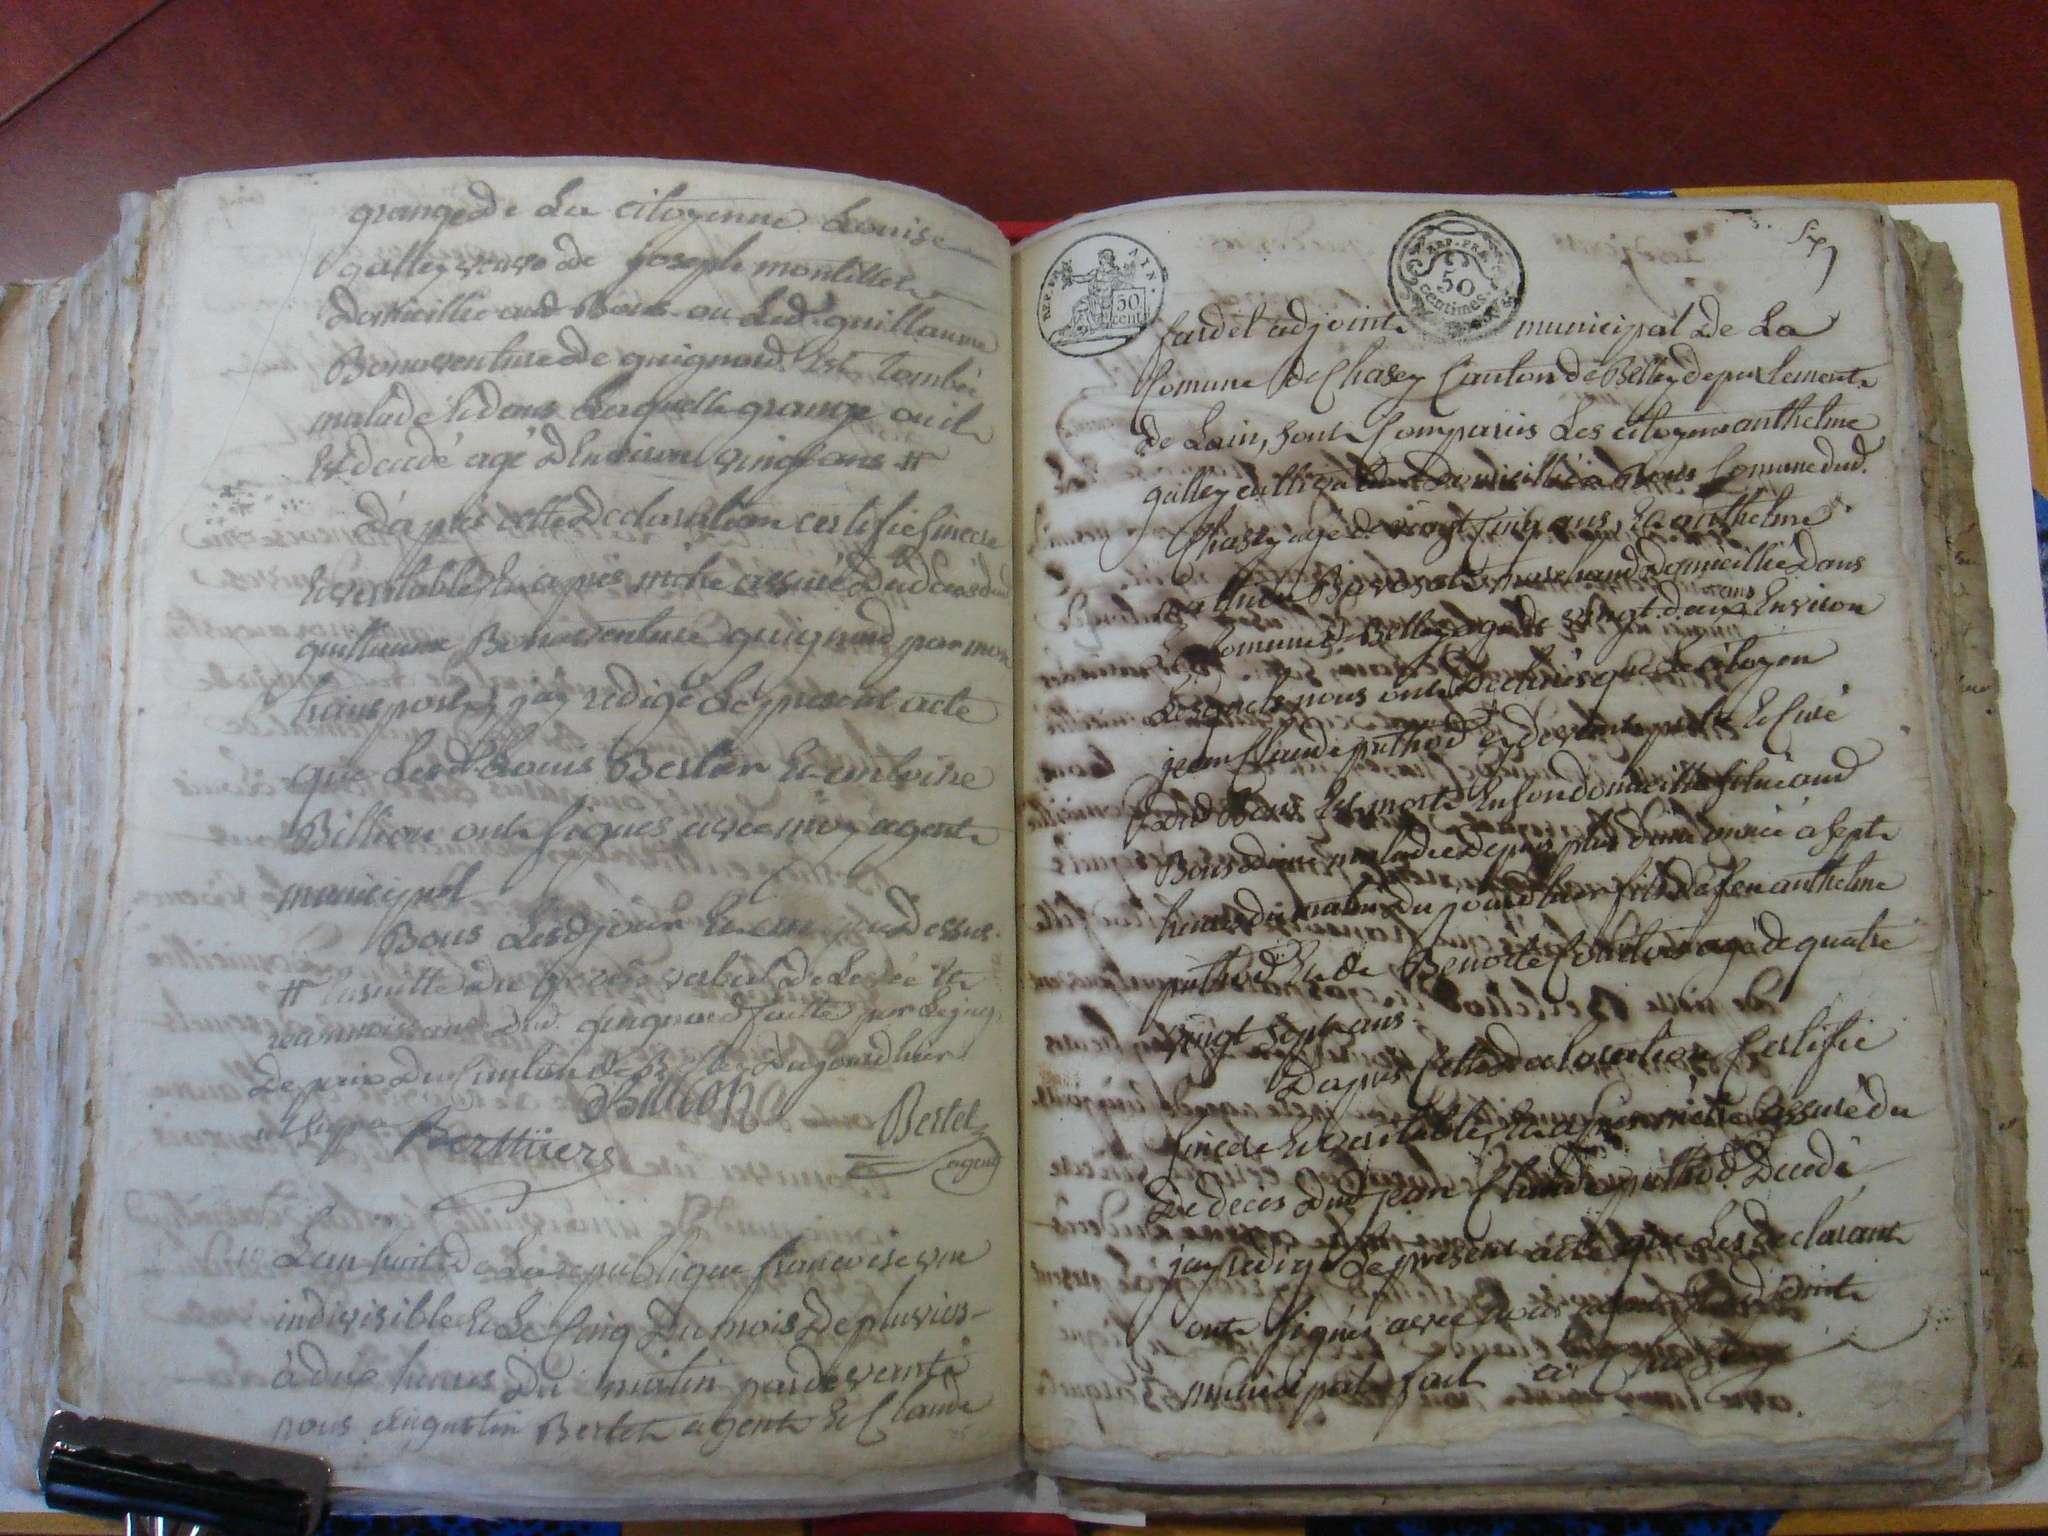 grange de La citoyenne Louise
galley veuve de joseph montillet
Domicillié aud Bons ou Led. guillaume
Bonaventure de guignard Est Tombé
malade Et dans Laquelle grange ou il
Est decedé agé D'Environ vingt ans #
D'apres cette Declaration certifié sincere
Et veritable Et apres m'etre assuré Du deces dud
guillaume Bonaventure guignard par mon
transport, j'ay redigé Le present acte
que Lesd. Louis Bertier Et antoine
Billion ont signés avec moy agent
municipal
Bons Lesd jour Et an que Dessus.
# Ensuitte du procès verbal De Levée Et
reconnoissance Dud. guignard faitte par Le juge
De paix Du Canton de Belley Dujourd'huer
Billion
Bertet
Berthiers
agent
L'an huit de La republique francoise une
indivisible Et Le Cinq Du mois De pluvios-
à dix heures Du matin pardevant
nous augustin Bertet agent Et Claude
REP. FRA. AIN.
50
cent.
REP. FRA.
50
centimes
fardel adjoint municipal De La
Comune De Chasey Canton de Belley departement
de Lain, sont Comparus Les citoyens anthelme
galley cultivateur Domicillié à Bons Comune dud.
Chasey agé de vingt Cinq ans, Et anthelme
marchand Domicillié Dans
Comune de Belley agé de vingt deux ans Environ
Lesquels nous ont Declarés que Le Citoyen
jean Claude puthod cydevant pretre Et Curé
dud Bons Est mort En son domicille situé aud
Bons d'une maladie Depuis plus d'une année à sept
heures du matin Du jourd'huer fils de feu anthelme
puthod Et de Benoite agé de quatre
vingt sept ans.
D'apres Cette Declaration Certifié
sincere Et veritable, Et apres m'etre assuré du
De deces dud jean Claude puthod Decedé
j'ay redigé Le present acte que Les declarant
ont signés avec nous agent Et adjoint
municipal fait à Chasey